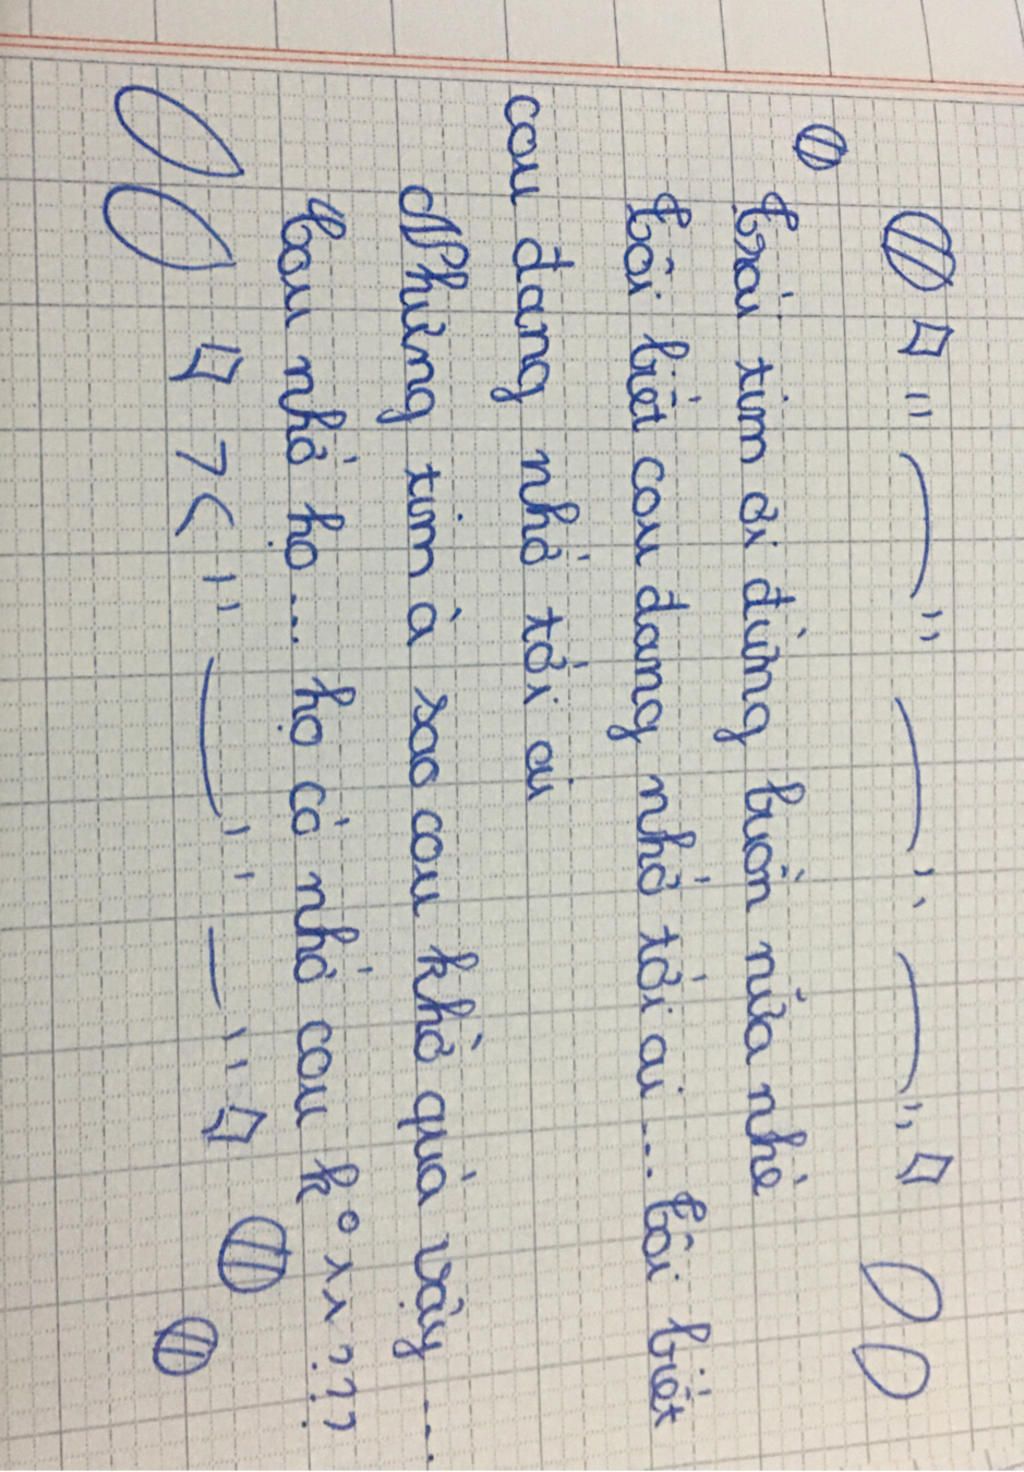 Trái tim ơi đừng buồn nữa nhé
Tôi biết cou đang nhớ tới ai... Tôi biết
cou đang nhớ tới ai
Nhưng tim à sao cou khờ quá vậy...
Cou nhớ họ... họ có nhớ cou k°